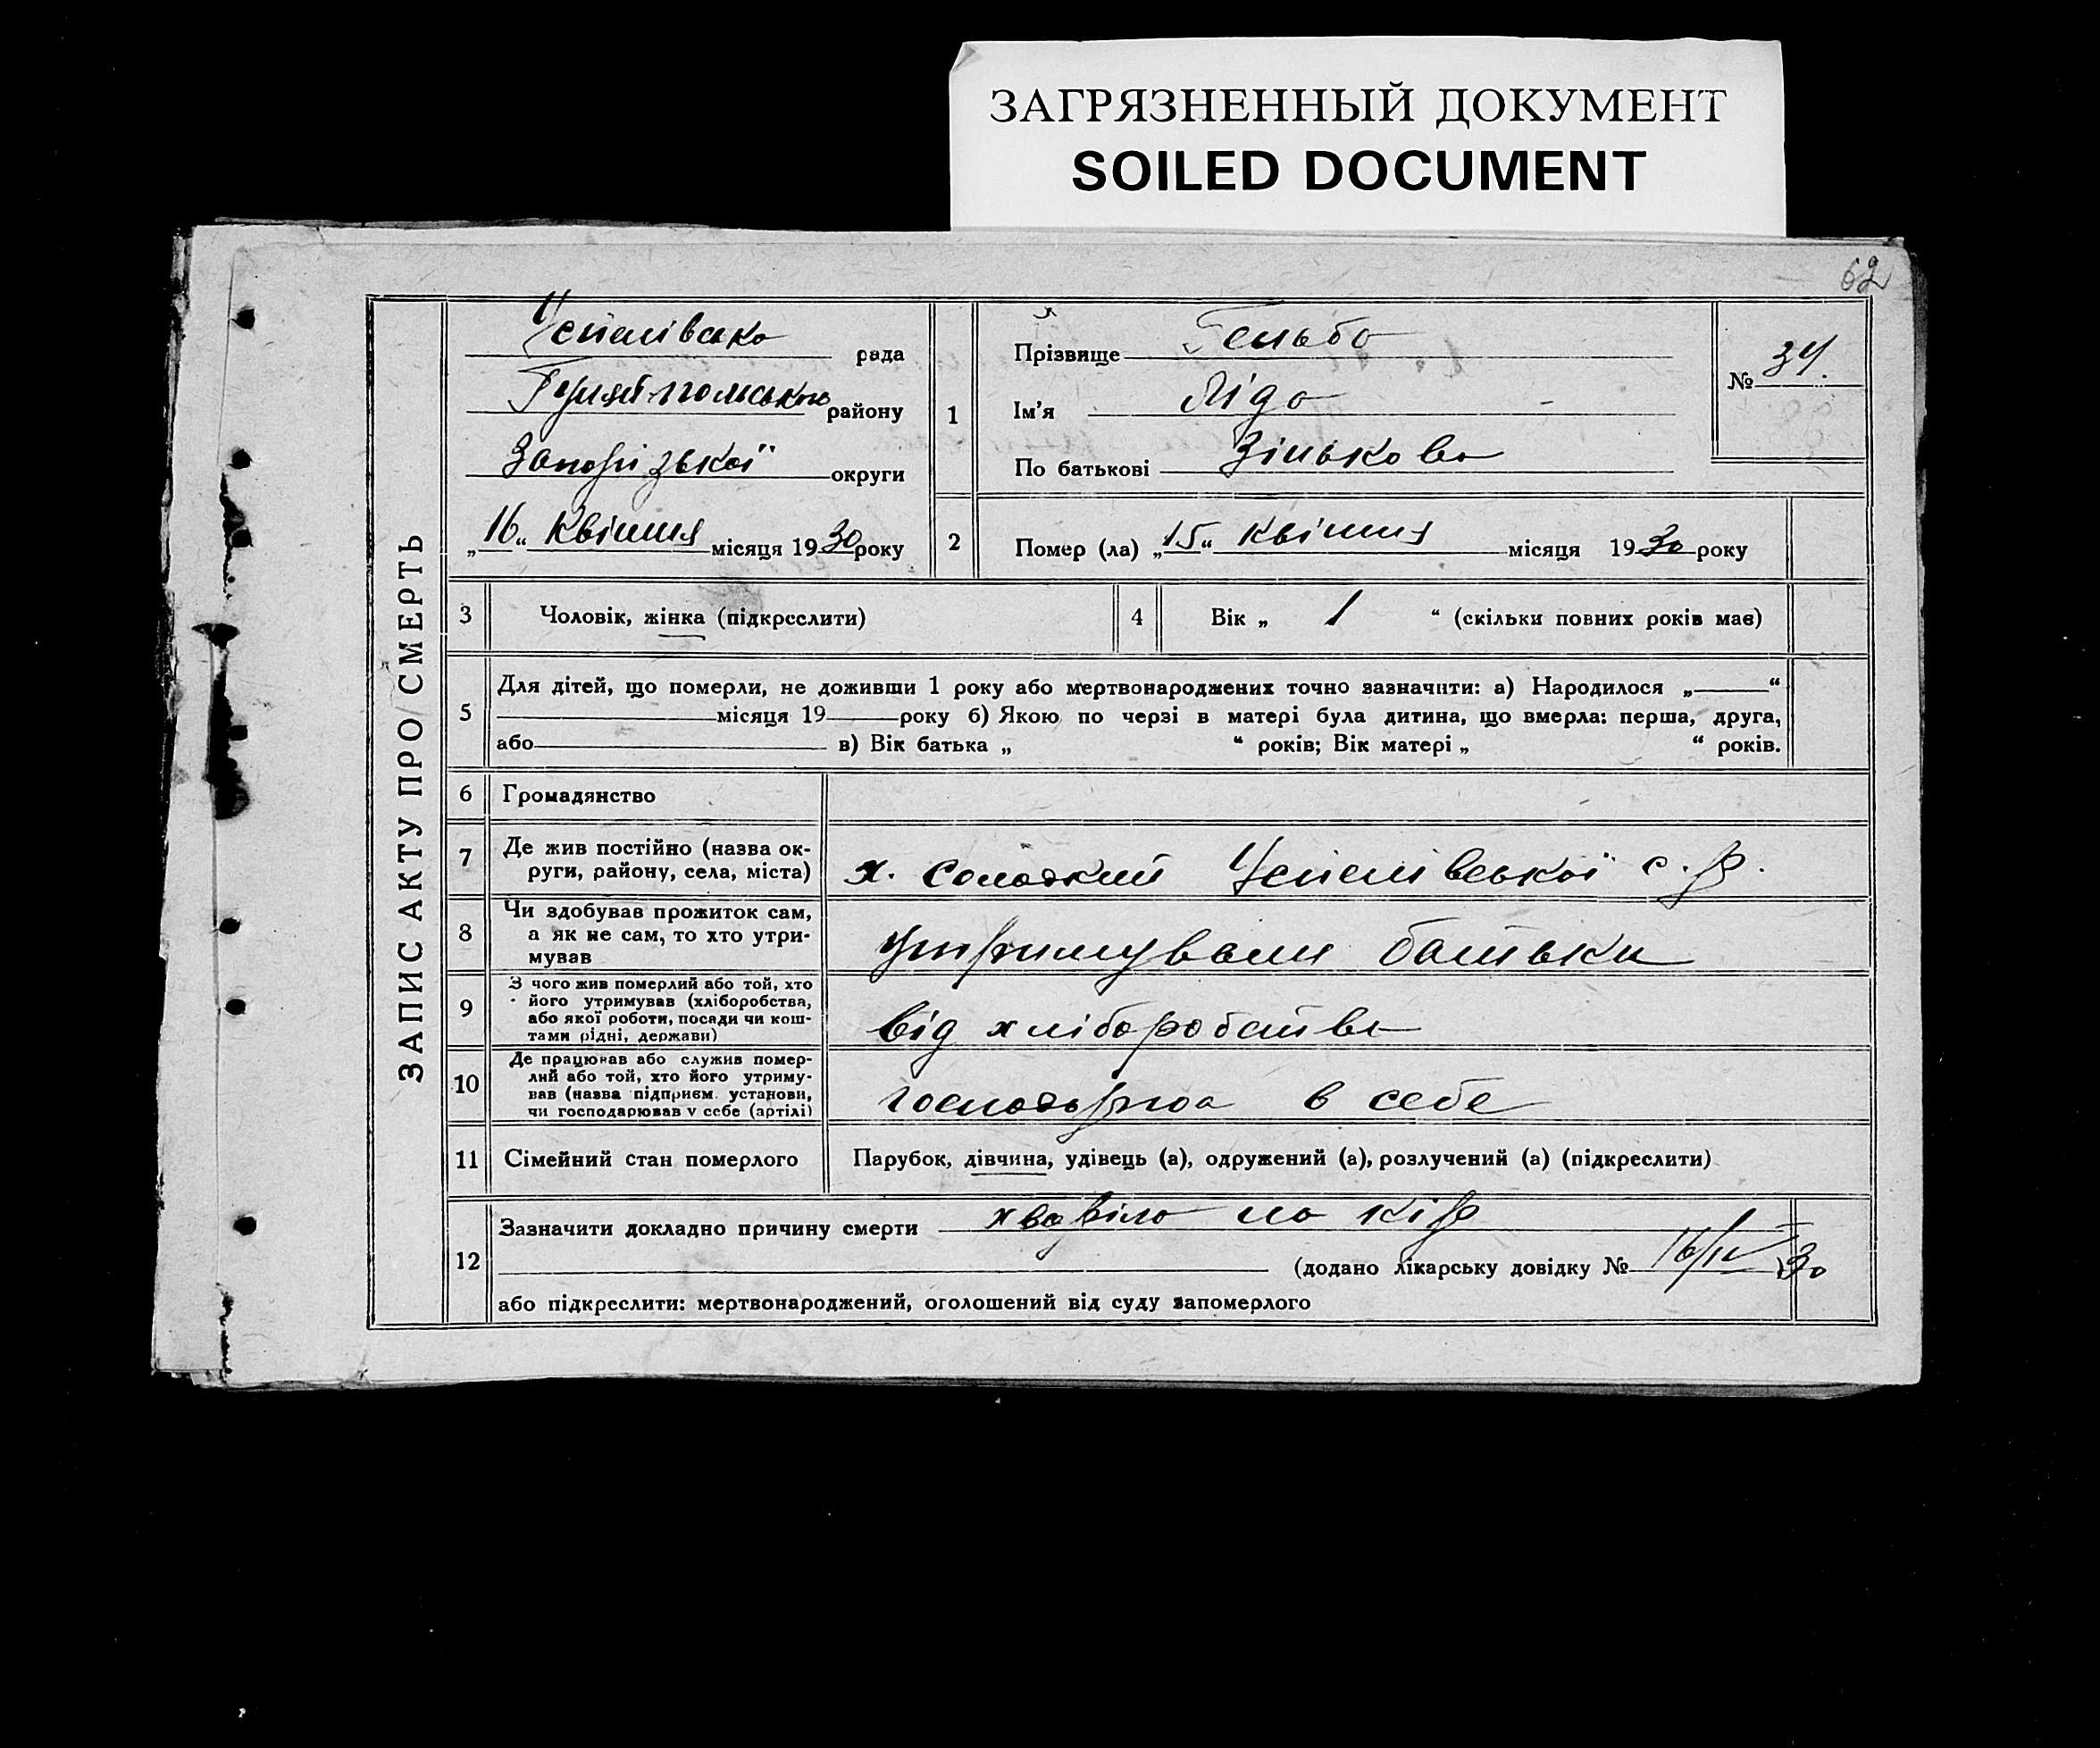 ЗАГРЯЗНЕННЫЙ ДОКУМЕНТ
SOILED DOCUMENT
62
ЗАПИС АКТУ ПРО СМЕРТЬ
Успенівська рада
Гуляй-польського району
Запорізької округи
„16“ квітня місяця 1930 року
1
Прізвище Гельбо
Ім'я Ліда
По батькові Зінькова
№ 34
2
Помер (ла) „15“ квітня місяця 1930 року
3 Чоловік, жінка (підкреслити)
4 Вік „ 1 “ (скільки повних років має)
5
Для дітей, що померли, не доживши 1 року або мертвонароджених точно зазначити: а) Народилося „ “
місяця 19 року б) Якою по черзі в матері була дитина, що вмерла: перша, друга,
або в) Вік батька „ “ років; Вік матері „ “ років.
6 Громадянство
7 Де жив постійно (назва ок-
руги, району, села, міста)
х. Солодкий Успенівської с.р.
8 Чи здобував прожиток сам,
а як не сам, то хто утри-
мував
утримували батьки
9 З чого жив померлий або той, хто
його утримував (хліборобства,
або якої роботи, посади чи кош-
тами рідні, держави)
від хліборобства
10 Де працював або служив помер-
лий або той, хто його утриму-
вав (назва підприєм. установи,
чи господарював у себе (артілі)
в себе
11 Сімейний стан померлого
Парубок, дівчина, удівець (а), одружений (а), розлучений (а) (підкреслити)
12
Зазначити докладно причину смерти хворіла на кір
(додано лікарську довідку № 16/IV 30
або підкреслити: мертвонароджений, оголошений від суду запомерлого